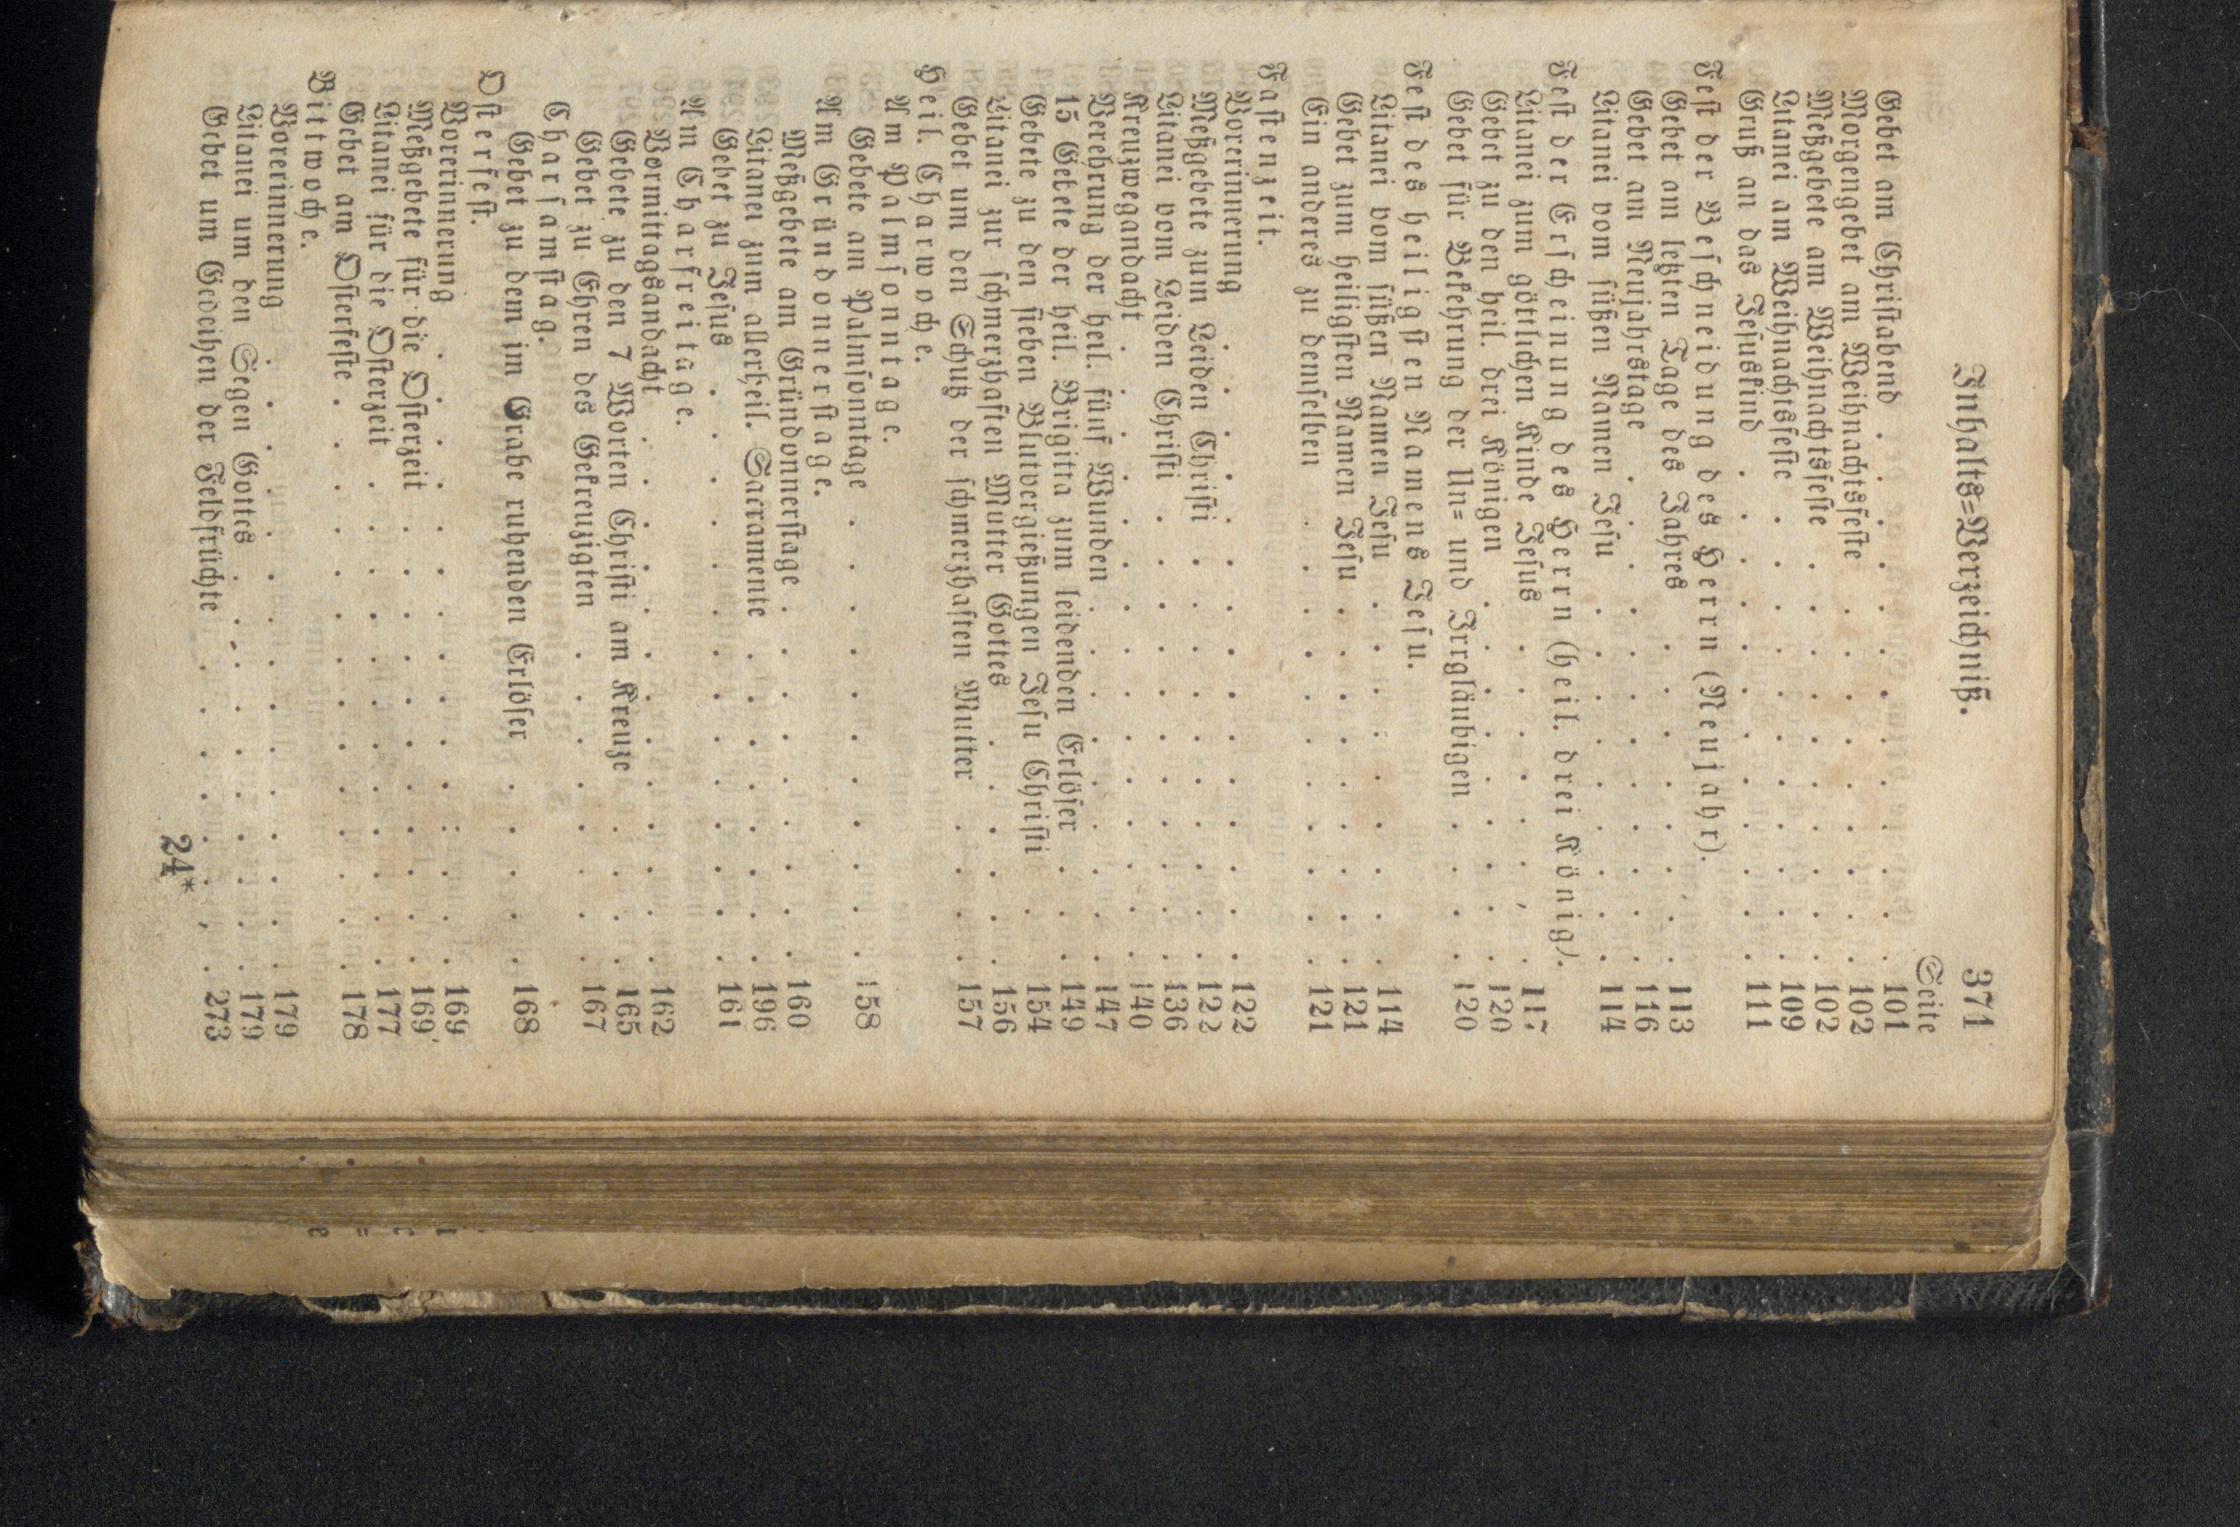 Inhalts=Verzeichniß. 371
Seite
Gebet am Christabend . . . . . . . . 101
Morgengebet am Weihnachtsfeste . . . . . . . 102
Meßgebete am Weihnachtsfeste . . . . . . . 102
Litanei am Weihnachtsfeste . . . . . . . 109
Gruß an das Jesuskind . . . . . . . 111
Fest der Beschneidung des Herrn (Neujahr).
Gebet am letzten Tage des Jahres . . . . . . 113
Gebet am Neujahrstage . . . . . . . 116
Litanei vom süßen Namen Jesu . . . . . . 114
Fest der Erscheinung des Herrn (heil. drei König).
Litanei zum göttlichen Kinde Jesus . . . . . . 117
Gebet zu den heil. drei Königen . . . . . . 120
Gebet für Bekehrung der Un= und Irrgläubigen . . . . 120
Fest des heiligsten Namens Jesu.
Litanei vom süßen Namen Jesu . . . . . . 114
Gebet zum heiligsten Namen Jesu . . . . . . 121
Ein anderes zu demselben . . . . . . . 121
Fastenzeit.
Vorerinnerung . . . . . . . . 122
Meßgebete zum Leiden Christi . . . . . . . 122
Litanei vom Leiden Christi . . . . . . . 136
Kreuzwegandacht . . . . . . . . 140
Verehrung der heil. fünf Wunden . . . . . . 147
15 Gebete der heil. Brigitta zum leidenden Erlöser . . . 149
Gebete zu den sieben Blutvergießungen Jesu Christi . . . 154
Litanei zur schmerzhaften Mutter Gottes . . . . . 156
Gebet um den Schutz der schmerzhaften Mutter . . . . 157
Heil. Charwoche.
Am Palmsonntage.
Gebete am Palmsonntage . . . . . . . 158
Am Gründonnerstage.
Meßgebete am Gründonnerstage . . . . . . 160
Litanei zum allerheil. Sacramente . . . . . . 196
Gebet zu Jesus . . . . . . . . 161
Am Charfreitage.
Vormittagsandacht . . . . . . . . 162
Gebete zu den 7 Worten Christi am Kreuze . . . . 165
Gebet zu Ehren des Gekreuzigten . . . . . . 167
Charsamstag.
Gebet zu dem im Grabe ruhenden Erlöser . . . . . 168
Osterfest.
Vorerinnerung . . . . . . . . 169
Meßgebete für die Osterzeit . . . . . . . 169
Litanei für die Osterzeit . . . . . . . 177
Gebet am Osterfeste . . . . . . . . 178
Bittwoche.
Vorerinnerung . . . . . . . . 179
Litanei um den Segen Gottes . . . . . . . 179
Gebet um Gedeihen der Feldfrüchte . . . . . . 273
24*